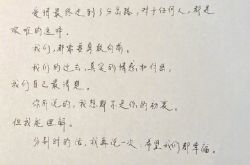 爱情最终走到了分岔路，对于任何人，都是
艰难的选择。
我们，都需要勇敢向前。
我们的过去，真实的情感和付出，
我们自己最清楚。
你所说的，我想都不是你的初衷。
但我能理解。
分别时的话，我再说一次：希望我们都幸福。